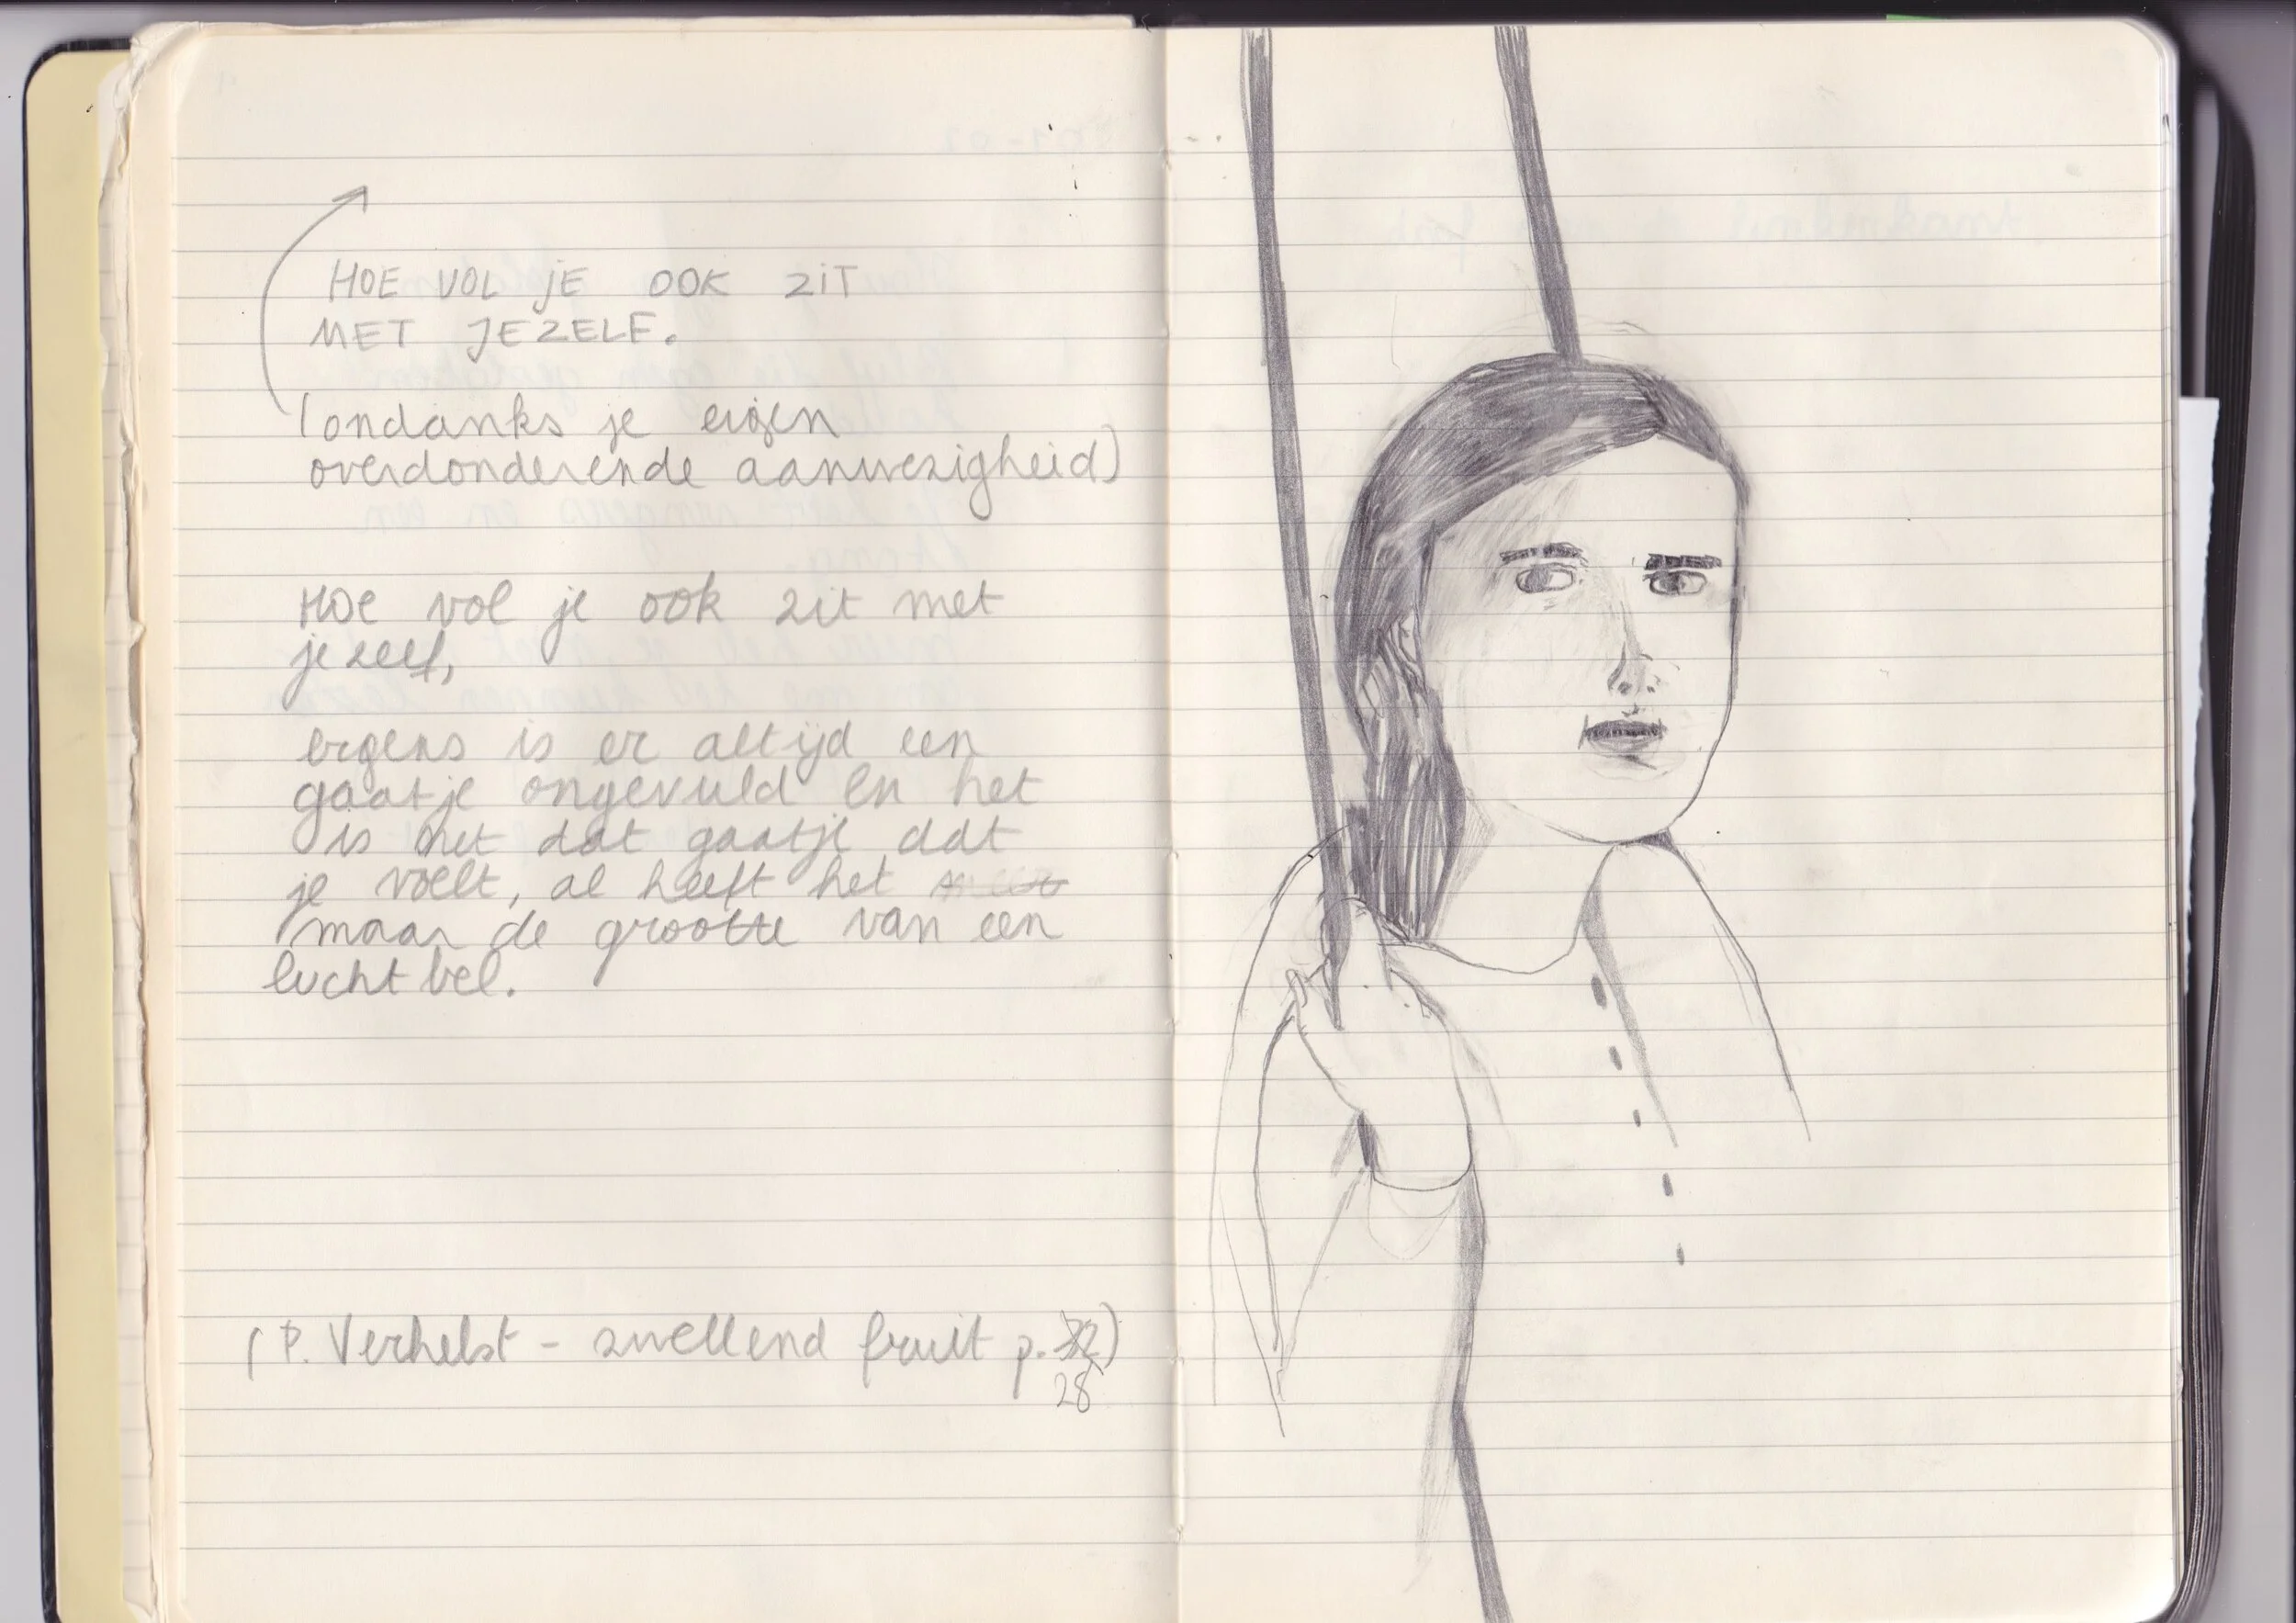 HOE VOL JE OOK ZIT
MET JEZELF.
(ondanks je eigen
overdonderende aanwezigheid)
Hoe vol je ook zit met
jezelf,
ergens is er altijd een
gaatje ongevuld en het
is net dat gaatje dat
je voelt, al heeft het
maar de grootte van een
luchtbel.
(P. Verhelst - zwellend fruit p. 32)
28